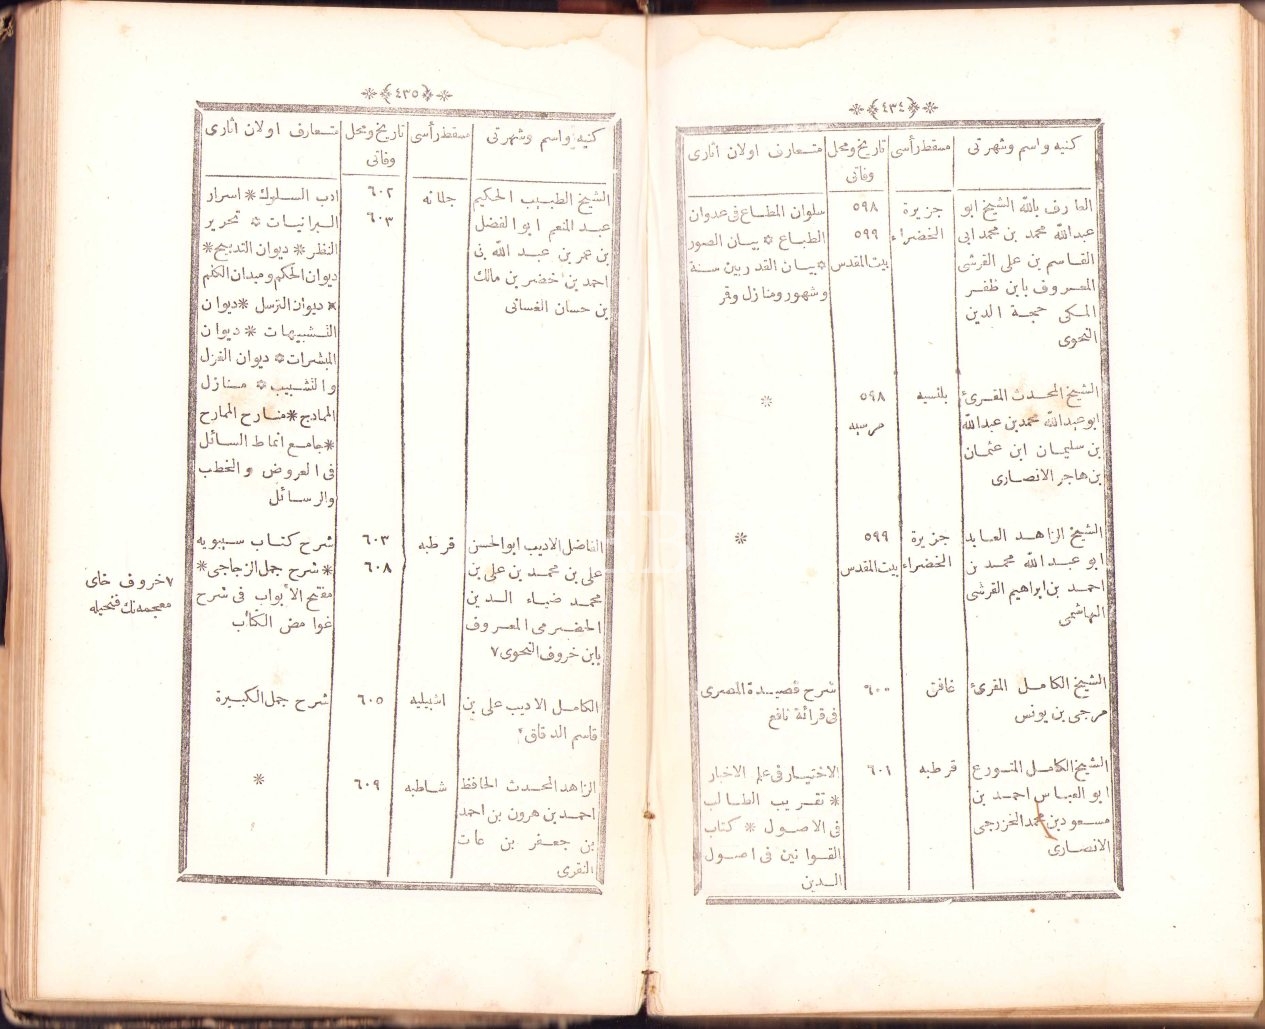 ﴿٤٣٤﴾
كنيه واسم وشهرتى
مسقط رأسى
تاريخ ومحل
وفاتى
متعارف اولان اثارى
العارف بالله الشيخ ابو
عبدالله محمد بن محمد ابى
القاسم بن على القرشى
المعروف بابن ظفر
المكى حجة الدين
النحوى
جزيرة
الخضراء
٥٩٨
٥٩٩
بيت المقدس
سلوان المطاع فى عدوان
الطباع * بيان الصور
* بيان القدر بين سنة
وشهور ومنازل وقر
الشيخ المحدث المقرئ
ابو عبدالله محمد بن عبدالله
بن سليمان ابن عثمان
بن هاجر الانصارى
بلنسيه
٥٩٨
مرسيه
*
الشيخ الزاهد العابد
ابو عبدالله محمد بن
احمد بن ابراهيم القرشى
الهاشمى
جزيرة
الخضراء
٥٩٩
بيت المقدس
*
الشيخ الكامل المقرئ
مرجى بن يونس
غافق
٦٠٠
شرح قصيدة المصرى
فى قرائة نافع
الشيخ الكامل المتورع
ابو العباس احمد بن
مسعود بن محمد الخزرجى
الانصارى
قرطبه
٦٠١
الاختيار فى علم الاخبار
* تقريب الطالب
فى الاصول * كتاب
القوانين فى اصول
الدين
﴿٤٣٥﴾
كنيه واسم وشهرتى
مسقط رأسى
تاريخ ومحل
وفاتى
متعارف اولان اثارى
الشيخ الطبيب الحكيم
عبد المنعم ابو الفضل
بن عمر بن عبد الله بى
احمد بن خضر بن مالك
بن حسان الغسانى
جلانه
٦٠٢
٦٠٣
ادب السلوك * اسرار
البرانيات * تحرير
النظر * ديوان التدبيج *
ديوان الحكم وميدان الكلم
* ديوان الترسل * ديوان
التشبيهات * ديوان
المبشرات * ديوان الغزل
والتشبيب * منازل
المادح * منارح الممارح
* جامع انماط السائل
فى العروض والخطب
والرسائل
الفاضل الاديب ابو الحسن
على بن محمد بن على بن
محمد ضياء الدين
الحضرمى المعروف
بابن خروف النحوى ٧
قرطبه
٦٠٣
٦٠٨
شرح كتاب سيبويه
* شرح جمل الزجاجى *
مفتح الابواب فى شرح
غوامض الكتاب
٧ خروف خاى
معجمه نك فتحيله
الكامل الاديب على بن
قاسم الدقاق
اشبيليه
٦٠٥
شرح جمل الكبيرة
الزاهد المحدث الحافظ
احمد بن هرون بن احمد
بن جعفر بن عات
النقرى
شاطبه
٦٠٩
*